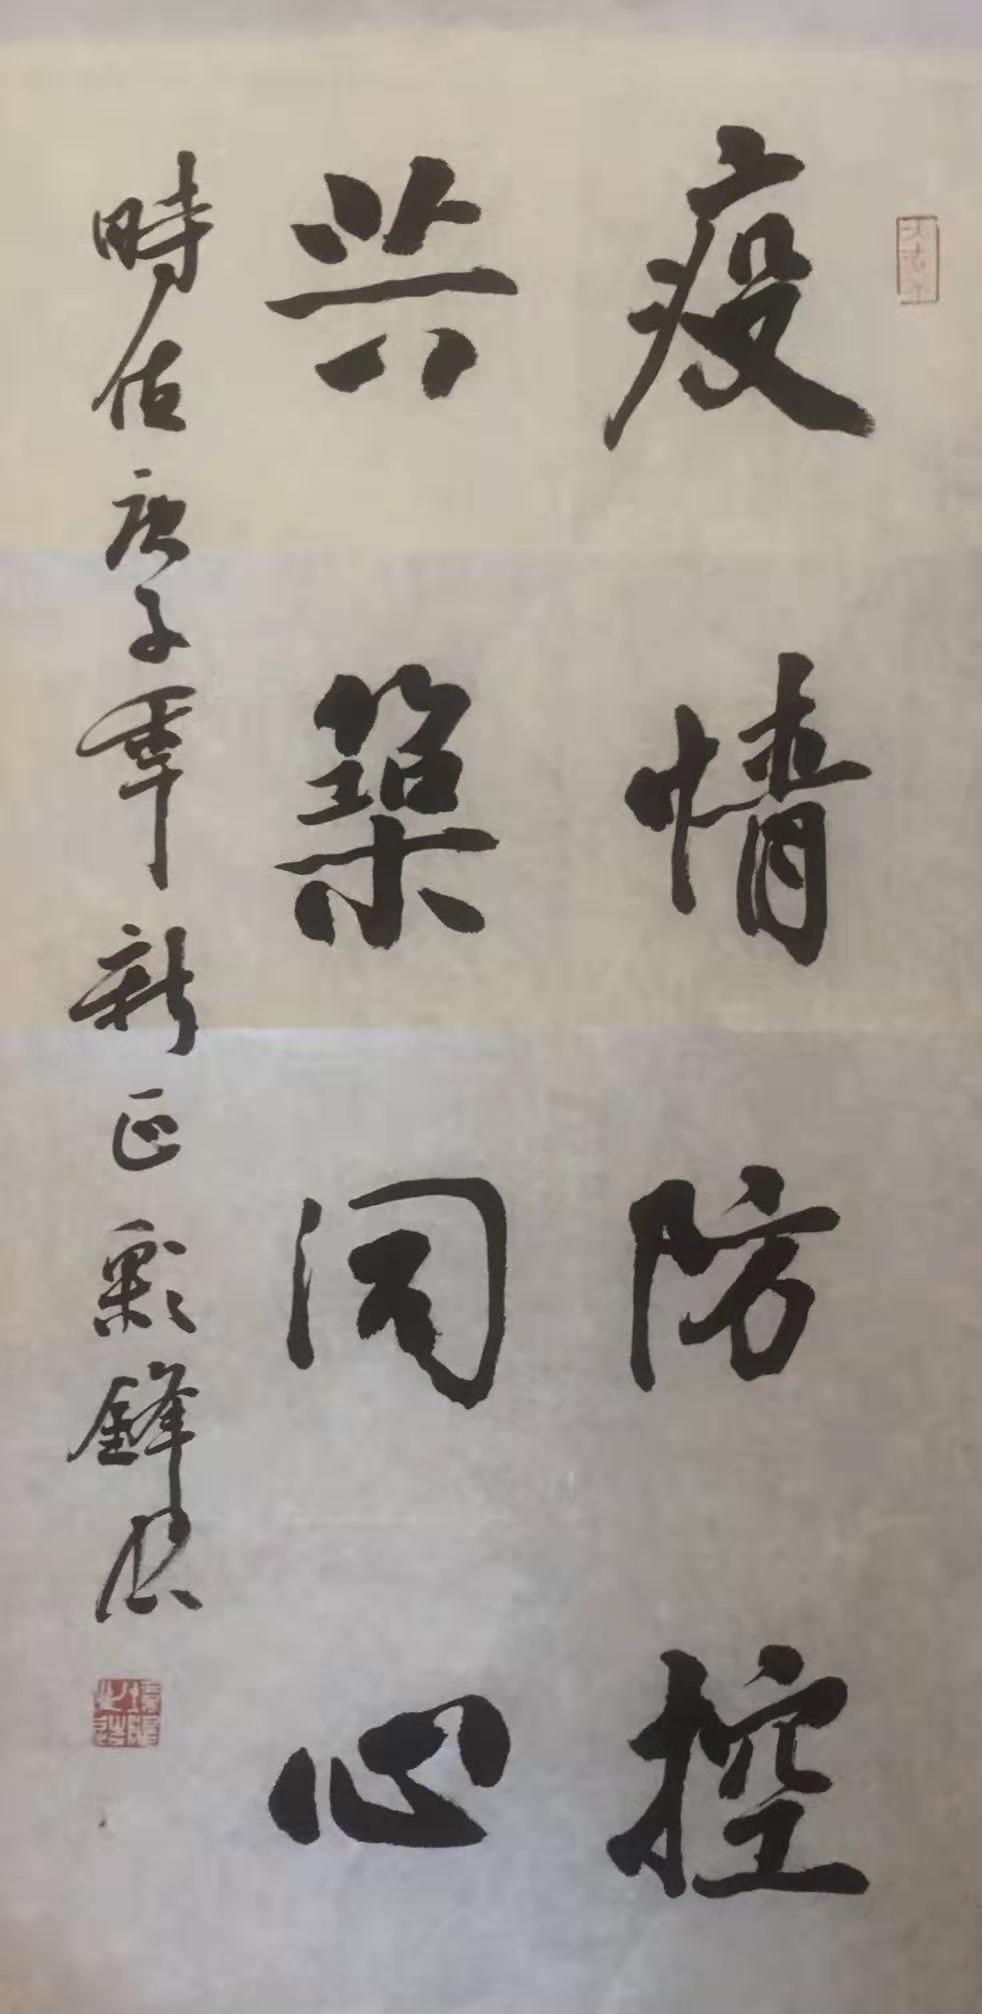 疫情防控
共築同心
時值庚子年新正彩鋒書